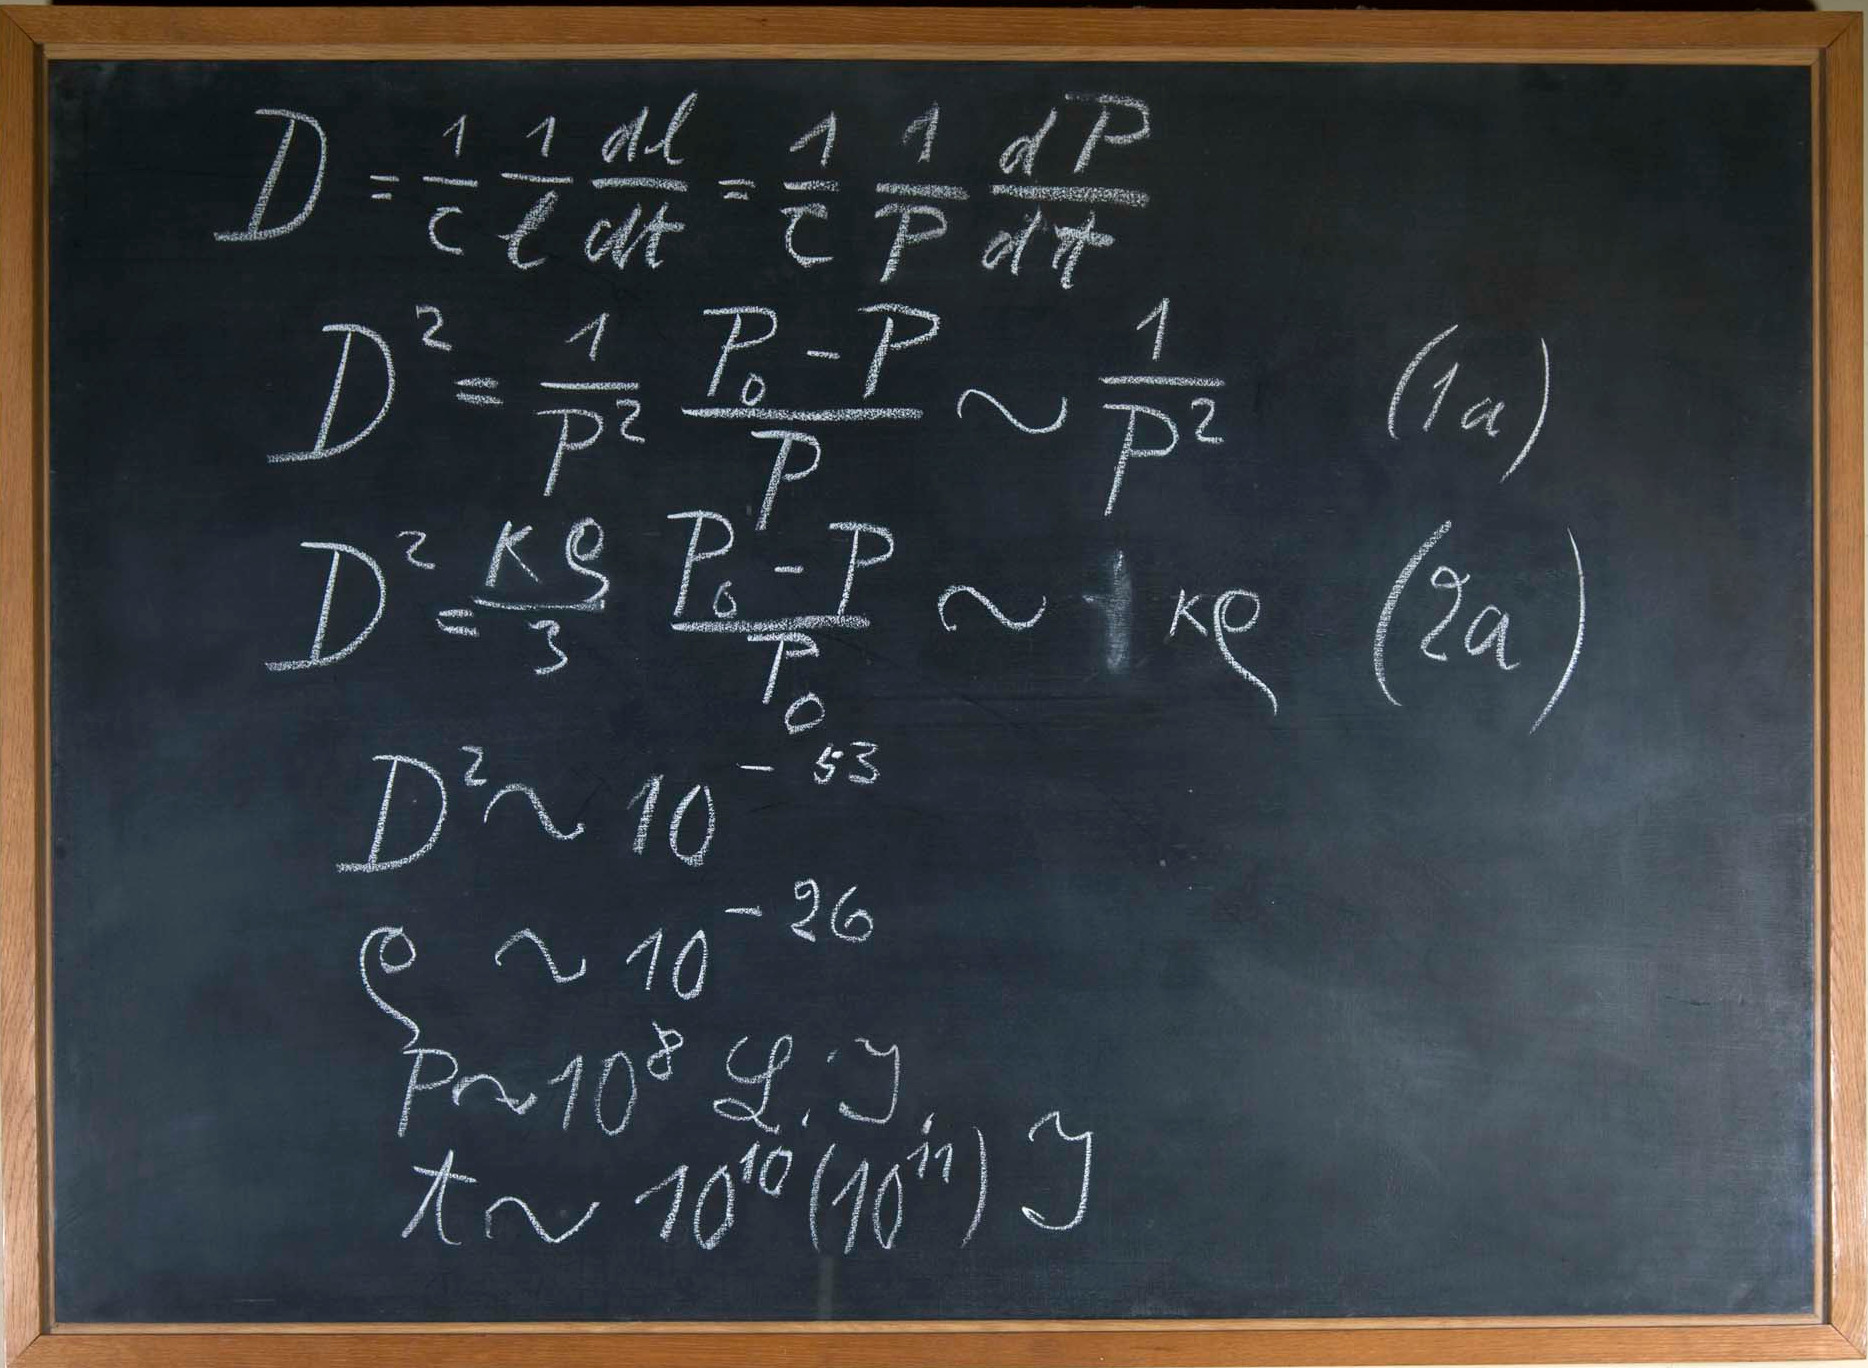 D = 1/c 1/l dl/dt = 1/c 1/P dP/dt
D² = 1/P² P₀-P/P ~ 1/P² (1a)
D² = κρ/3 P₀-P/P₀ ~ κρ (2a)
D² ~ 10⁻⁵³
ρ ~ 10⁻²⁶
P ~ 10⁸ L.J.
t ~ 10¹⁰ (10¹¹) J